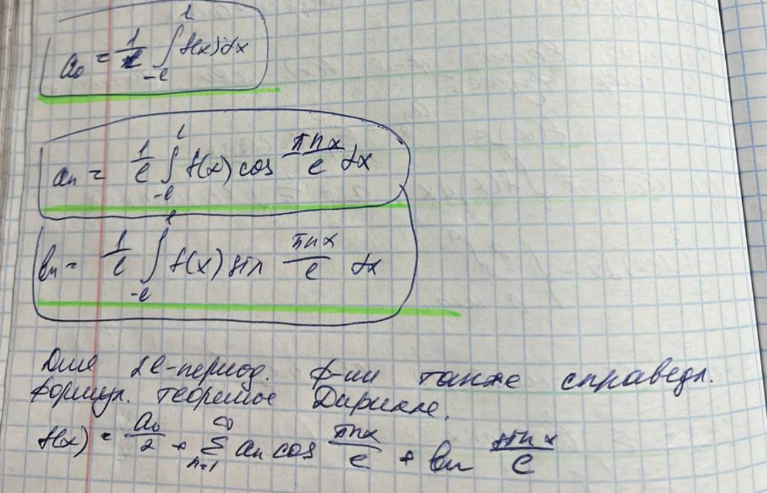 a₀ = 1/ℓ ∫_{-ℓ}^{ℓ} f(x)dx
aₙ = 1/ℓ ∫_{-ℓ}^{ℓ} f(x) cos πnx/ℓ dx
bₙ = 1/ℓ ∫_{-ℓ}^{ℓ} f(x) sin πnx/ℓ dx
Для 2ℓ-период. ф-ии также справедл.
формул. теоремы Дирихле.
f(x) = a₀/2 + ∑_{n=1}^{∞} aₙ cos πnx/ℓ + bₙ πnx/ℓ